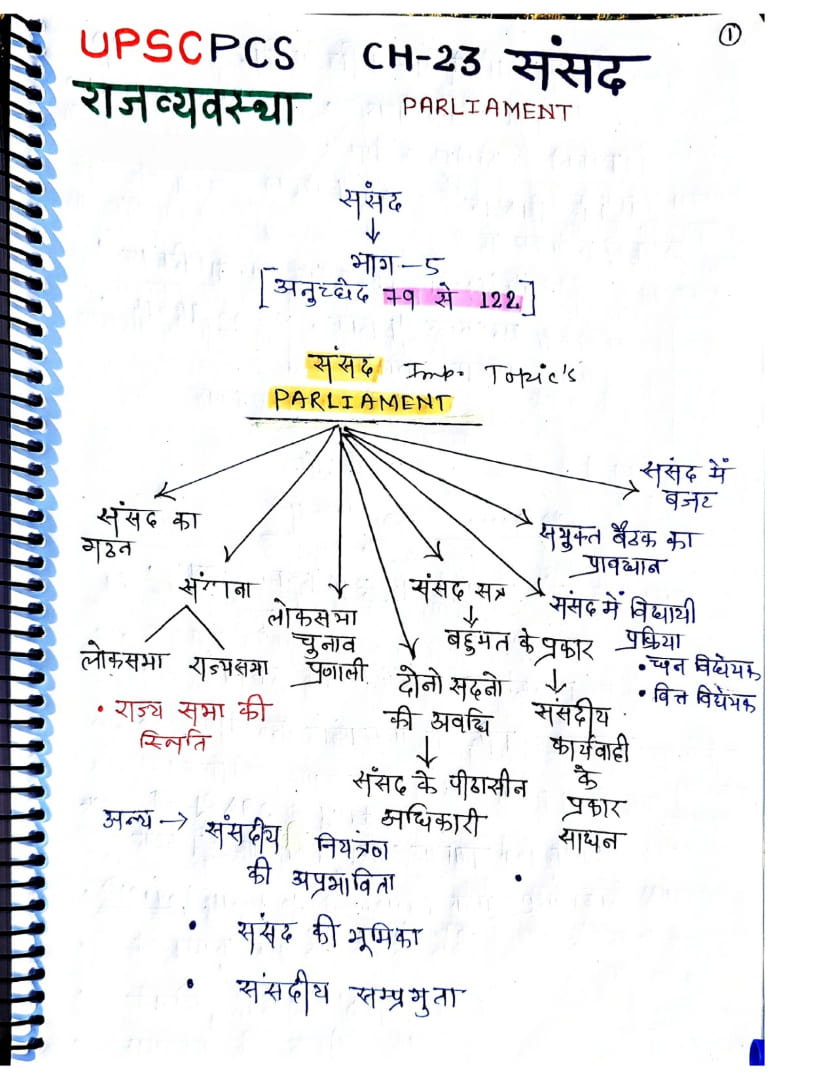 ①
UPSCPCS CH-23 संसद
राजव्यवस्था PARLIAMENT
संसद
↓
भाग-5
[अनुच्छेद 79 से 122]
संसद Imp. Topic's
PARLIAMENT
संसद का
गठन
संरचना
लोकसभा राज्यसभा
• राज्य सभा की
स्थिति
लोकसभा
चुनाव
प्रणाली
दोनो सदनो
की अवधि
↓
संसद के पीठासीन
अधिकारी
संसद सत्र
↓
बहुमत के प्रकार
↓
संसदीय
कार्यवाही
के
प्रकार
साधन
संसद में विधायी
प्रक्रिया
• धन विधेयक
• वित्त विधेयक
सयुक्त बैठक का
प्रावधान
संसद में
बजट
अन्य → संसदीय नियंत्रण
की अप्रभाविता
• संसद की भूमिका
• संसदीय सम्प्रभुता